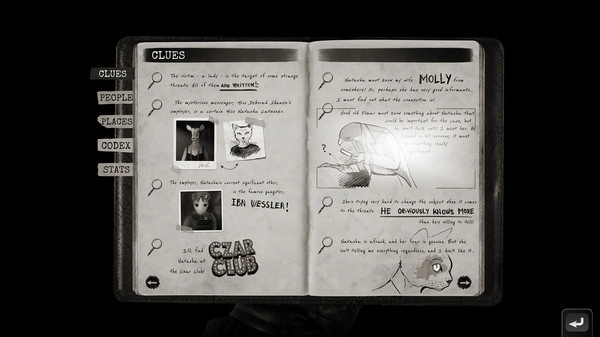 CLUES
CLUES
PEOPLE
PLACES
CODEX
STATS
The victim - a lady - is the target of some strange
threats. All of them ARE WRITTEN!
The mysterious messenger, Miss Deborah
employer, is a certain Miss Natasha
The employer, Natasha's current significant other,
is the famous gangster,
IBN WESSLER!
I'll find
Natasha at
the Czar Club!
CZAR
CLUB
Natasha must know my wife MOLLY from
somewhere! Or, perhaps she has very good informants.
I must find out what the connection is!
Good old Elmer must know something about Natasha that
could be important for the case, but
he won't talk until I meet her.
?
She's trying very hard to change the subject when it comes
to the threats. HE OBVIOUSLY KNOWS MORE
than he's willing to tell!
Natasha is afraid, and her fear is genuine. But she
isn't telling me everything regardless, and I don't like it.